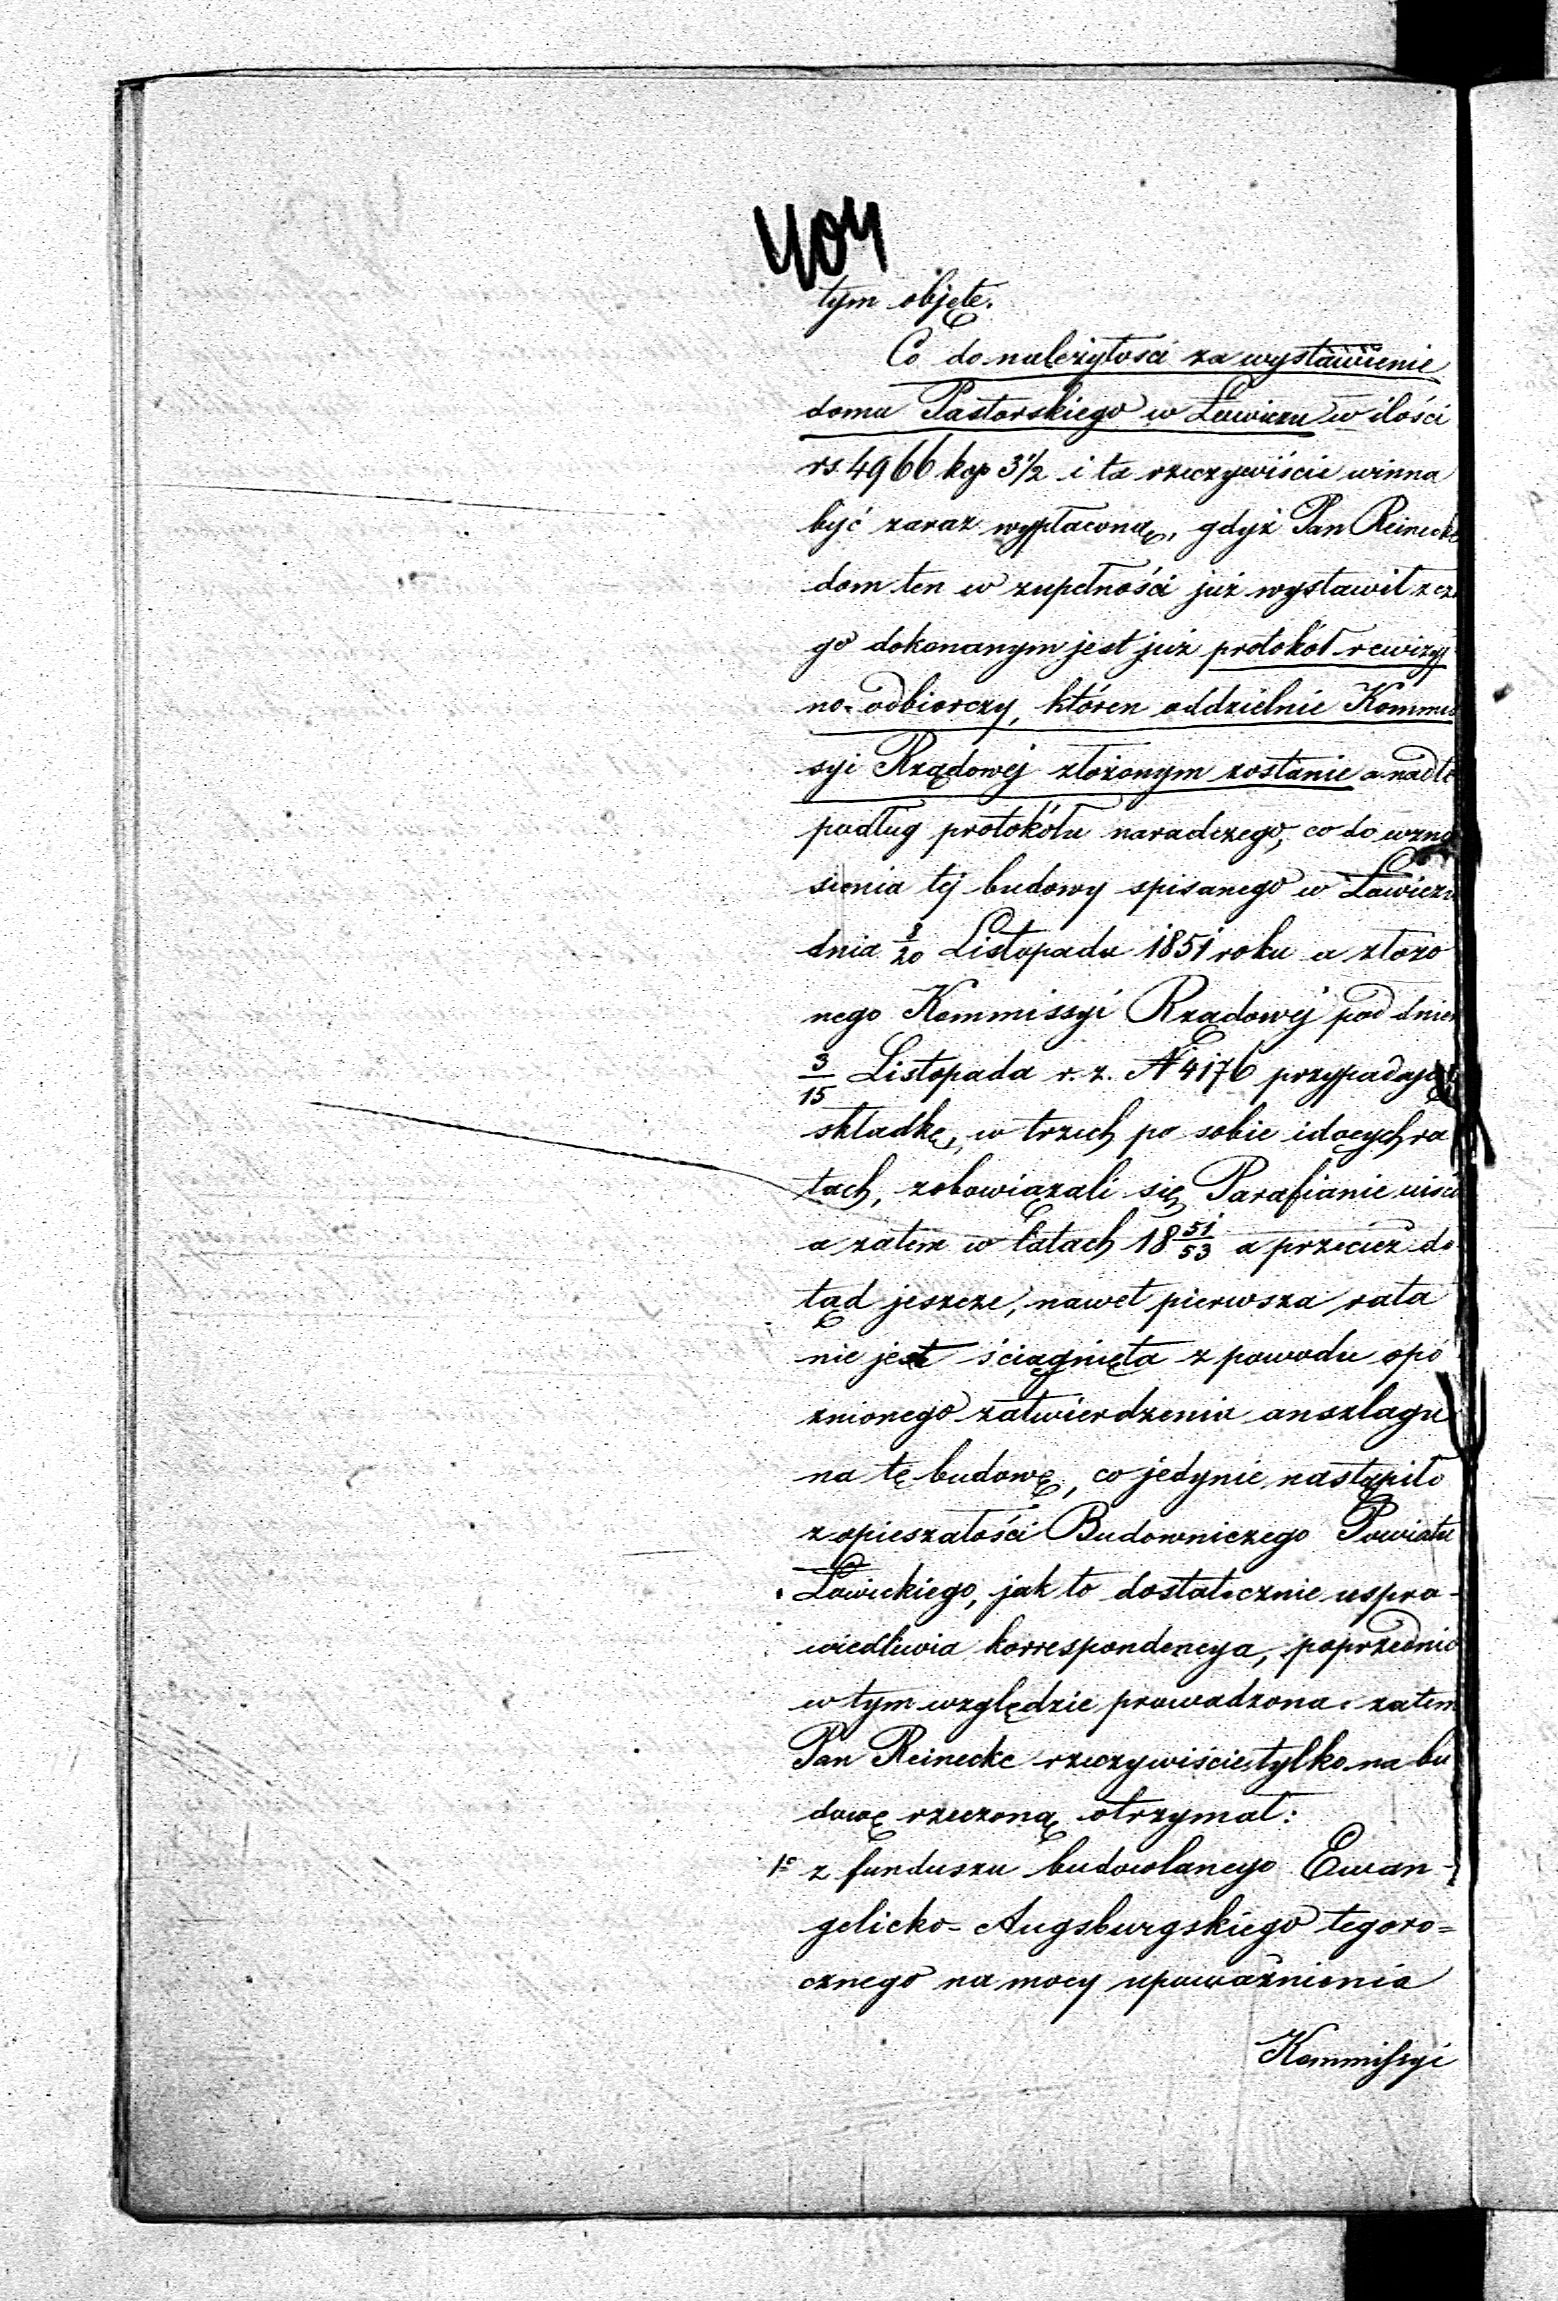 404
tym objęte.
Co do należytości za wystawienie
domu Pastorskiego w Łowiczu w ilości
rs. 4966 kop 3½ i ta rzeczywiście winna
być zaraz wypłaconą, gdyż Pan Reinecke
dom ten w zupełności już wystawił z cze
go dokonanym jest już protokół rewizyj
no-odbiorczy, któren oddzielnie Kommis
syi Rządowej złożonym zostanie a nadto
podług protokółu naradczego, co do wznie
sienia tej budowy spisanego w Łowiczu
dnia 8/20 Listopada 1851 roku a złożo
nego Kommissyi Rządowej pod dniem
3/15 Listopada r. z. N 4176 przypadającą
składkę, w trzech po sobie idących ra
tach, zobowiązali się Parafianie uiścić
a zatem w latach 18 51/53 a przecież do
tąd jeszcze, nawet pierwsza rata
nie jest ściągnięta z powodu opó
znionego zatwierdzenia anszlagu
na tę budowę, co jedynie nastąpiło
z opieszałości Budowniczego Powiatu
Łowickiego, jak to dostatecznie uspra-
wiedliwia korrespondencya, poprzednio
w tym względzie prowadzona, zatem
Pan Reinecke rzeczywiście tylko na bu
dowę rzeczoną otrzymał:
1º z funduszu budowlanego Ewan-
gelicko=Augsburgskiego tegoro=
cznego na mocy upoważnienia
Kommissyi